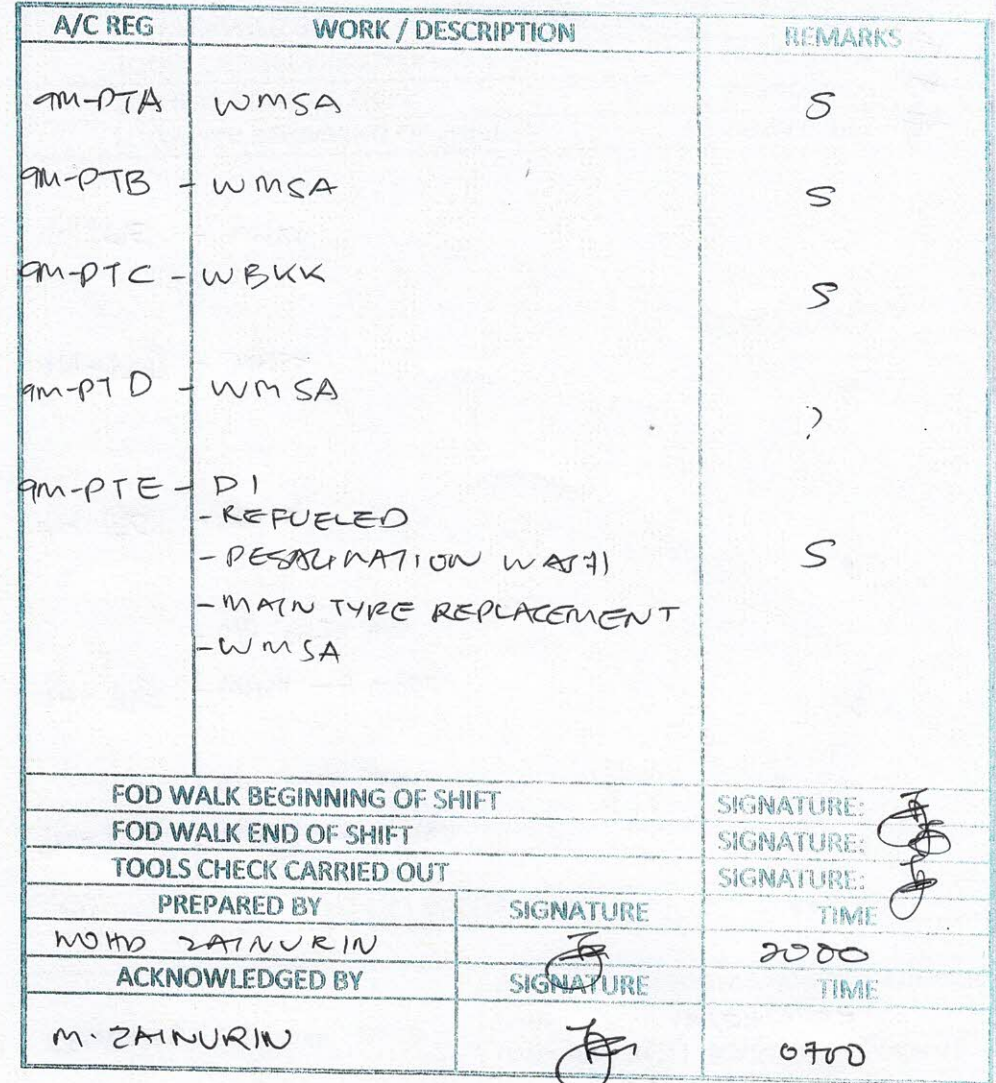 A/C REG WORK / DESCRIPTION REMARKS
9M-PTA WMSA S
9M-PTB - WMSA S
9M-PTC - WBKK S
9M-PTD - WMSA ?
9M-PTE - DI
- REFUELED
- DESALINATION WASH S
- MAIN TYRE REPLACEMENT
- WMSA
FOD WALK BEGINNING OF SHIFT SIGNATURE:
FOD WALK END OF SHIFT SIGNATURE:
TOOLS CHECK CARRIED OUT SIGNATURE:
PREPARED BY SIGNATURE TIME
MOHD ZAINURIN 2000
ACKNOWLEDGED BY SIGNATURE TIME
M. ZAINURIN 0700